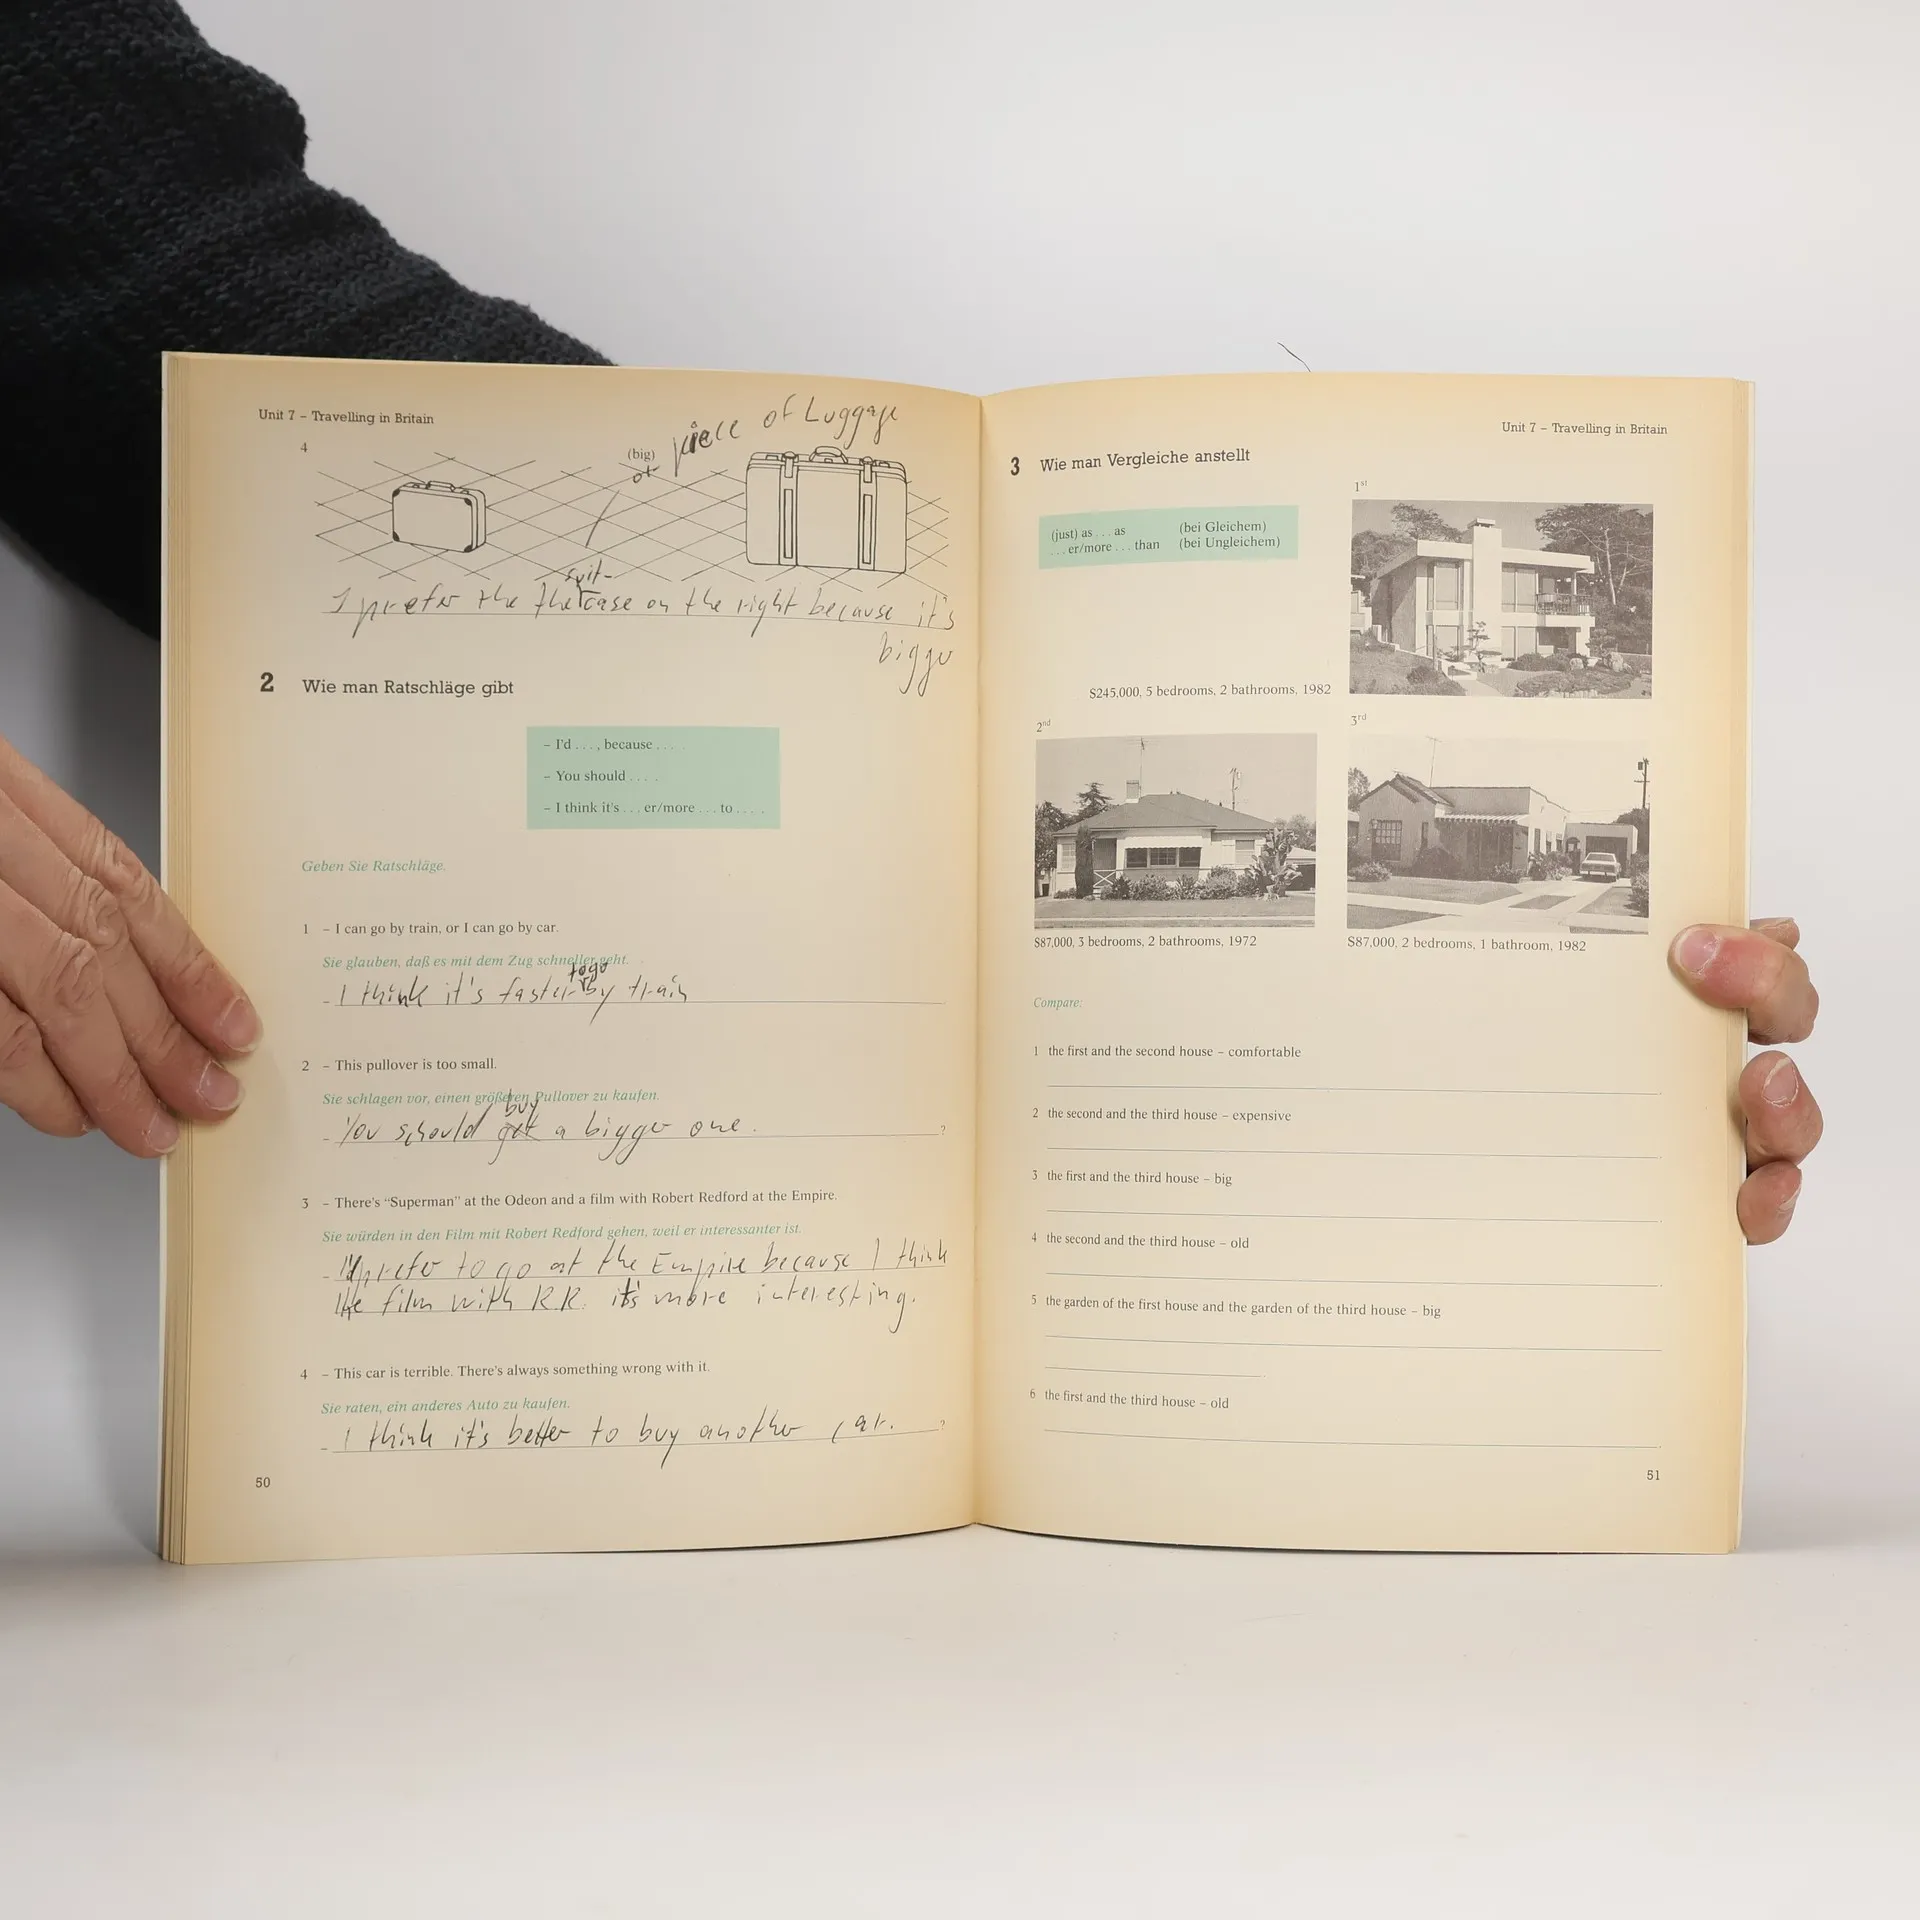 Unit 7 – Travelling in Britain
piece of Luggage
4
(big)
suit-
I prefer the the case on the right because it's
bigger
2 Wie man Ratschläge gibt
– I'd . . . , because . . . .
– You should . . . .
– I think it's . . . er/more . . . to . . . .
Geben Sie Ratschläge.
1 – I can go by train, or I can go by car.
Sie glauben, daß es mit dem Zug schneller geht.
to go
– I think it's faster by train
2 – This pullover is too small.
Sie schlagen vor, einen größeren Pullover zu kaufen.
buy
– You should get a bigger one. ?
3 – There's “Superman” at the Odeon and a film with Robert Redford at the Empire.
Sie würden in den Film mit Robert Redford gehen, weil er interessanter ist.
– I'd prefer to go at the Empire because I think
the film with R.R. it's more interesting.
4 – This car is terrible. There's always something wrong with it.
Sie raten, ein anderes Auto zu kaufen.
– I think it's better to buy another car. ?
50
Unit 7 – Travelling in Britain
3 Wie man Vergleiche anstellt
1st
(just) as . . . as (bei Gleichem)
. . . er/more . . . than (bei Ungleichem)
$245,000, 5 bedrooms, 2 bathrooms, 1982
2nd
3rd
$87,000, 3 bedrooms, 2 bathrooms, 1972
$87,000, 2 bedrooms, 1 bathroom, 1982
Compare:
1 the first and the second house – comfortable
2 the second and the third house – expensive
3 the first and the third house – big
4 the second and the third house – old
5 the garden of the first house and the garden of the third house – big
6 the first and the third house – old
51